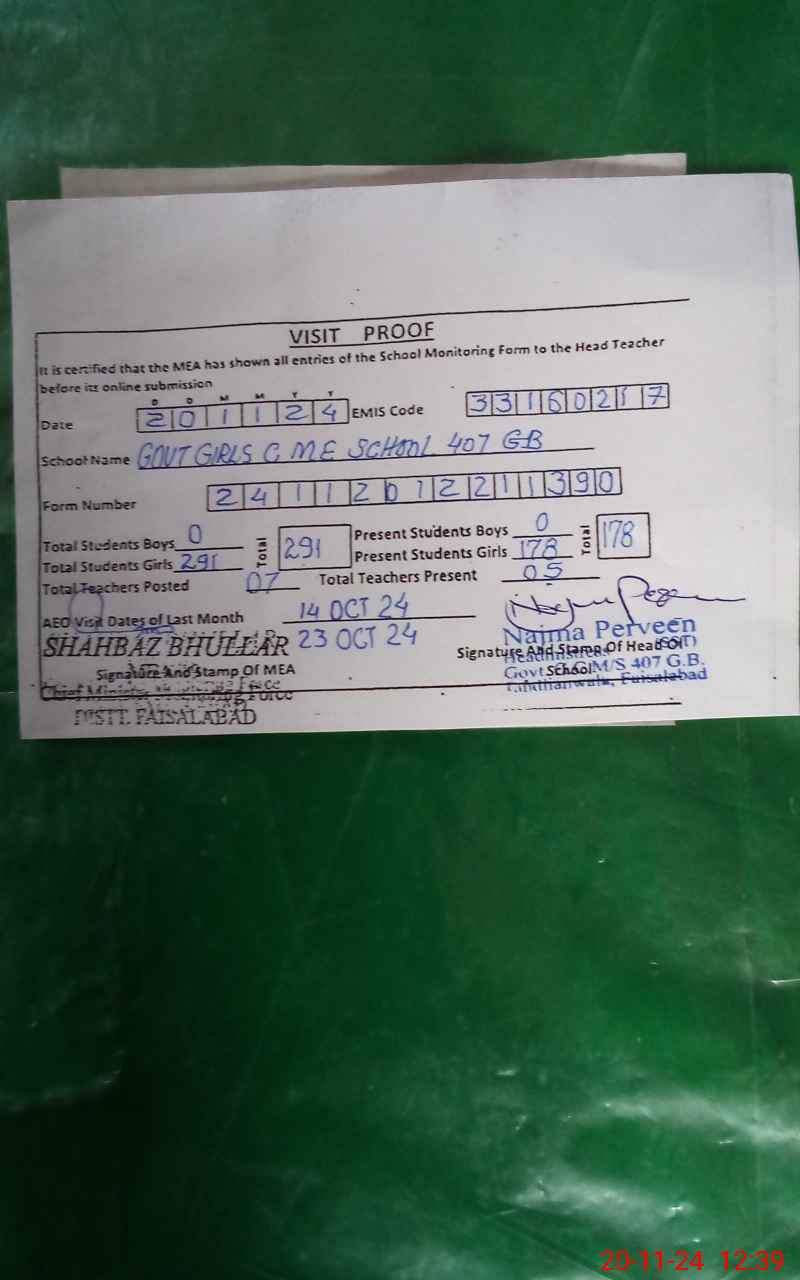 VISIT PROOF
It is certified that the MEA has shown all entries of the School Monitoring Form to the Head Teacher
before its online submission
D D M M Y Y
Date 201124 EMIS Code 33160217
School Name GOVT GIRLS C M E SCHOOL 407 GB
Form Number 24112012211390
Total Students Boys 0 Total 291 Present Students Boys 0 Total 178
Total Students Girls 291 Present Students Girls 178
Total Teachers Posted 07 Total Teachers Present 05
AEO Visit Dates of Last Month 14 OCT 24
23 OCT 24
SHAHBAZ BHULLAR
Signature And Stamp Of MEA
Force
DISTT. FAISALABAD
Najma Perveen
Signature And Stamp Of Head Of
School
Headmistress (SST)
Govt M/S 407 G.B.
Faisalabad
20-11-24 12:39